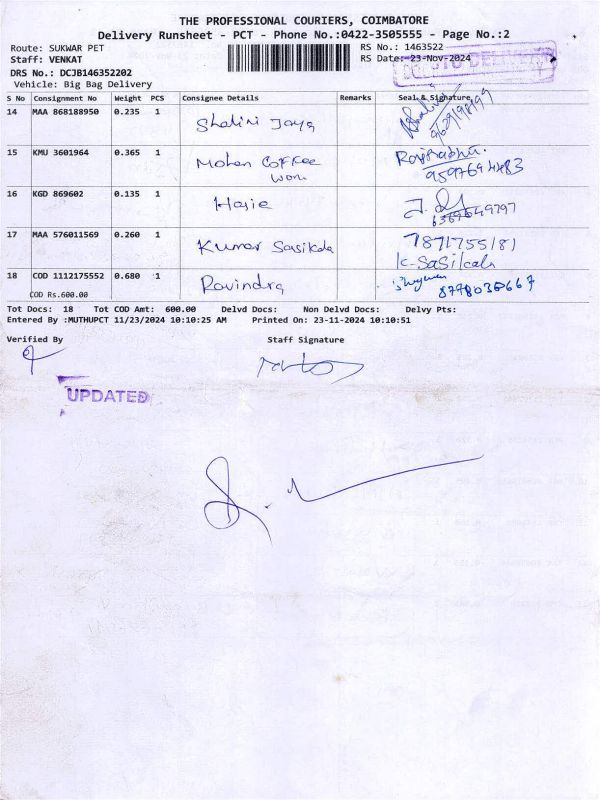 THE PROFESSIONAL COURIERS, COIMBATORE
Delivery Runsheet - PCT - Phone No.:0422-3505555 - Page No.:2
Route: SUKWAR PET RS No.: 1463522
Staff: VENKAT RS Date: 23-Nov-2024
DRS No.: DCJB146352202
Vehicle: Big Bag Delivery
S No Consignment No Weight PCS Consignee Details Remarks Seal & Signature
14 MAA 868188950 0.235 1 Shalini Jaya
15 KMU 3601964 0.365 1 Mohan Coffee
9597694483
16 KGD 869602 0.135 1
17 MAA 576011569 0.260 1 Kumar Sasikala 7871755181
K-Sasikala
18 COD 1112175552 0.680 1 Ravindra 8778038667
COD Rs.600.00
Tot Docs: 18 Tot COD Amt: 600.00 Delvd Docs: Non Delvd Docs: Delvy Pts:
Entered By :MUTHUPCT 11/23/2024 10:10:25 AM Printed On: 23-11-2024 10:10:51
Verified By Staff Signature
UPDATED